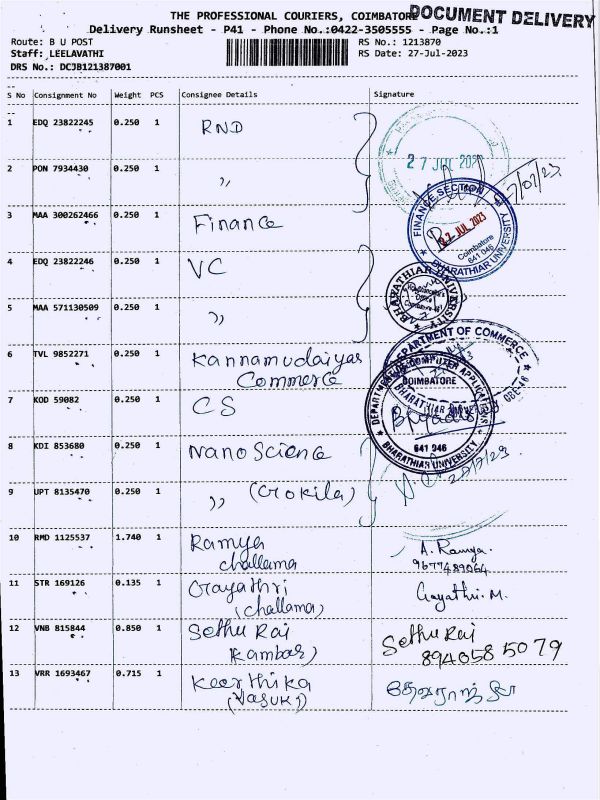 THE PROFESSIONAL COURIERS, COIMBATORE
DOCUMENT DELIVERY
Delivery Runsheet - P41 - Phone No.:0422-3505555 - Page No.:1
Route: B U POST
RS No.: 1213870
Staff: LEELAVATHI
RS Date: 27-Jul-2023
DRS No.: DCJB121387001
S No Consignment No Weight PCS Consignee Details Signature
1 EDQ 23822245 0.250 1 RND
27 JUL 202
2 PON 7934430 0.250 1 ,,
27/07/23
3 MAA 300262466 0.250 1 Finance
FINANCE SECTION
27 JUL 2023
Coimbatore
641 046
BHARATHIAR UNIVERSITY
4 EDQ 23822246 0.250 1 VC
BHARATHIAR UNIVERSITY
5 MAA 571130509 0.250 1 ,,
6 TVL 9852271 0.250 1 Kannamudaiyar
Commerce
DEPARTMENT OF COMMERCE
7 KOD 59082 0.250 1 CS
DEPARTMENT OF COMPUTER APPLICATIONS
COIMBATORE
641 046
BHARATHIAR UNIVERSITY
8 KDI 853680 0.250 1 Nano Science
9 UPT 8135470 0.250 1 ,, (Gokila)
10 RMD 1125537 1.740 1 Ramya
challama
A. Ramya.
9677489064
11 STR 169126 0.135 1 Gayathri
(challama)
Gayathri. M.
12 VNB 815844 0.850 1 Sethu Raj
(Kambar)
Sethu Raj
8940585079
13 VRR 1693467 0.715 1 Keerthika
(Vasuki)